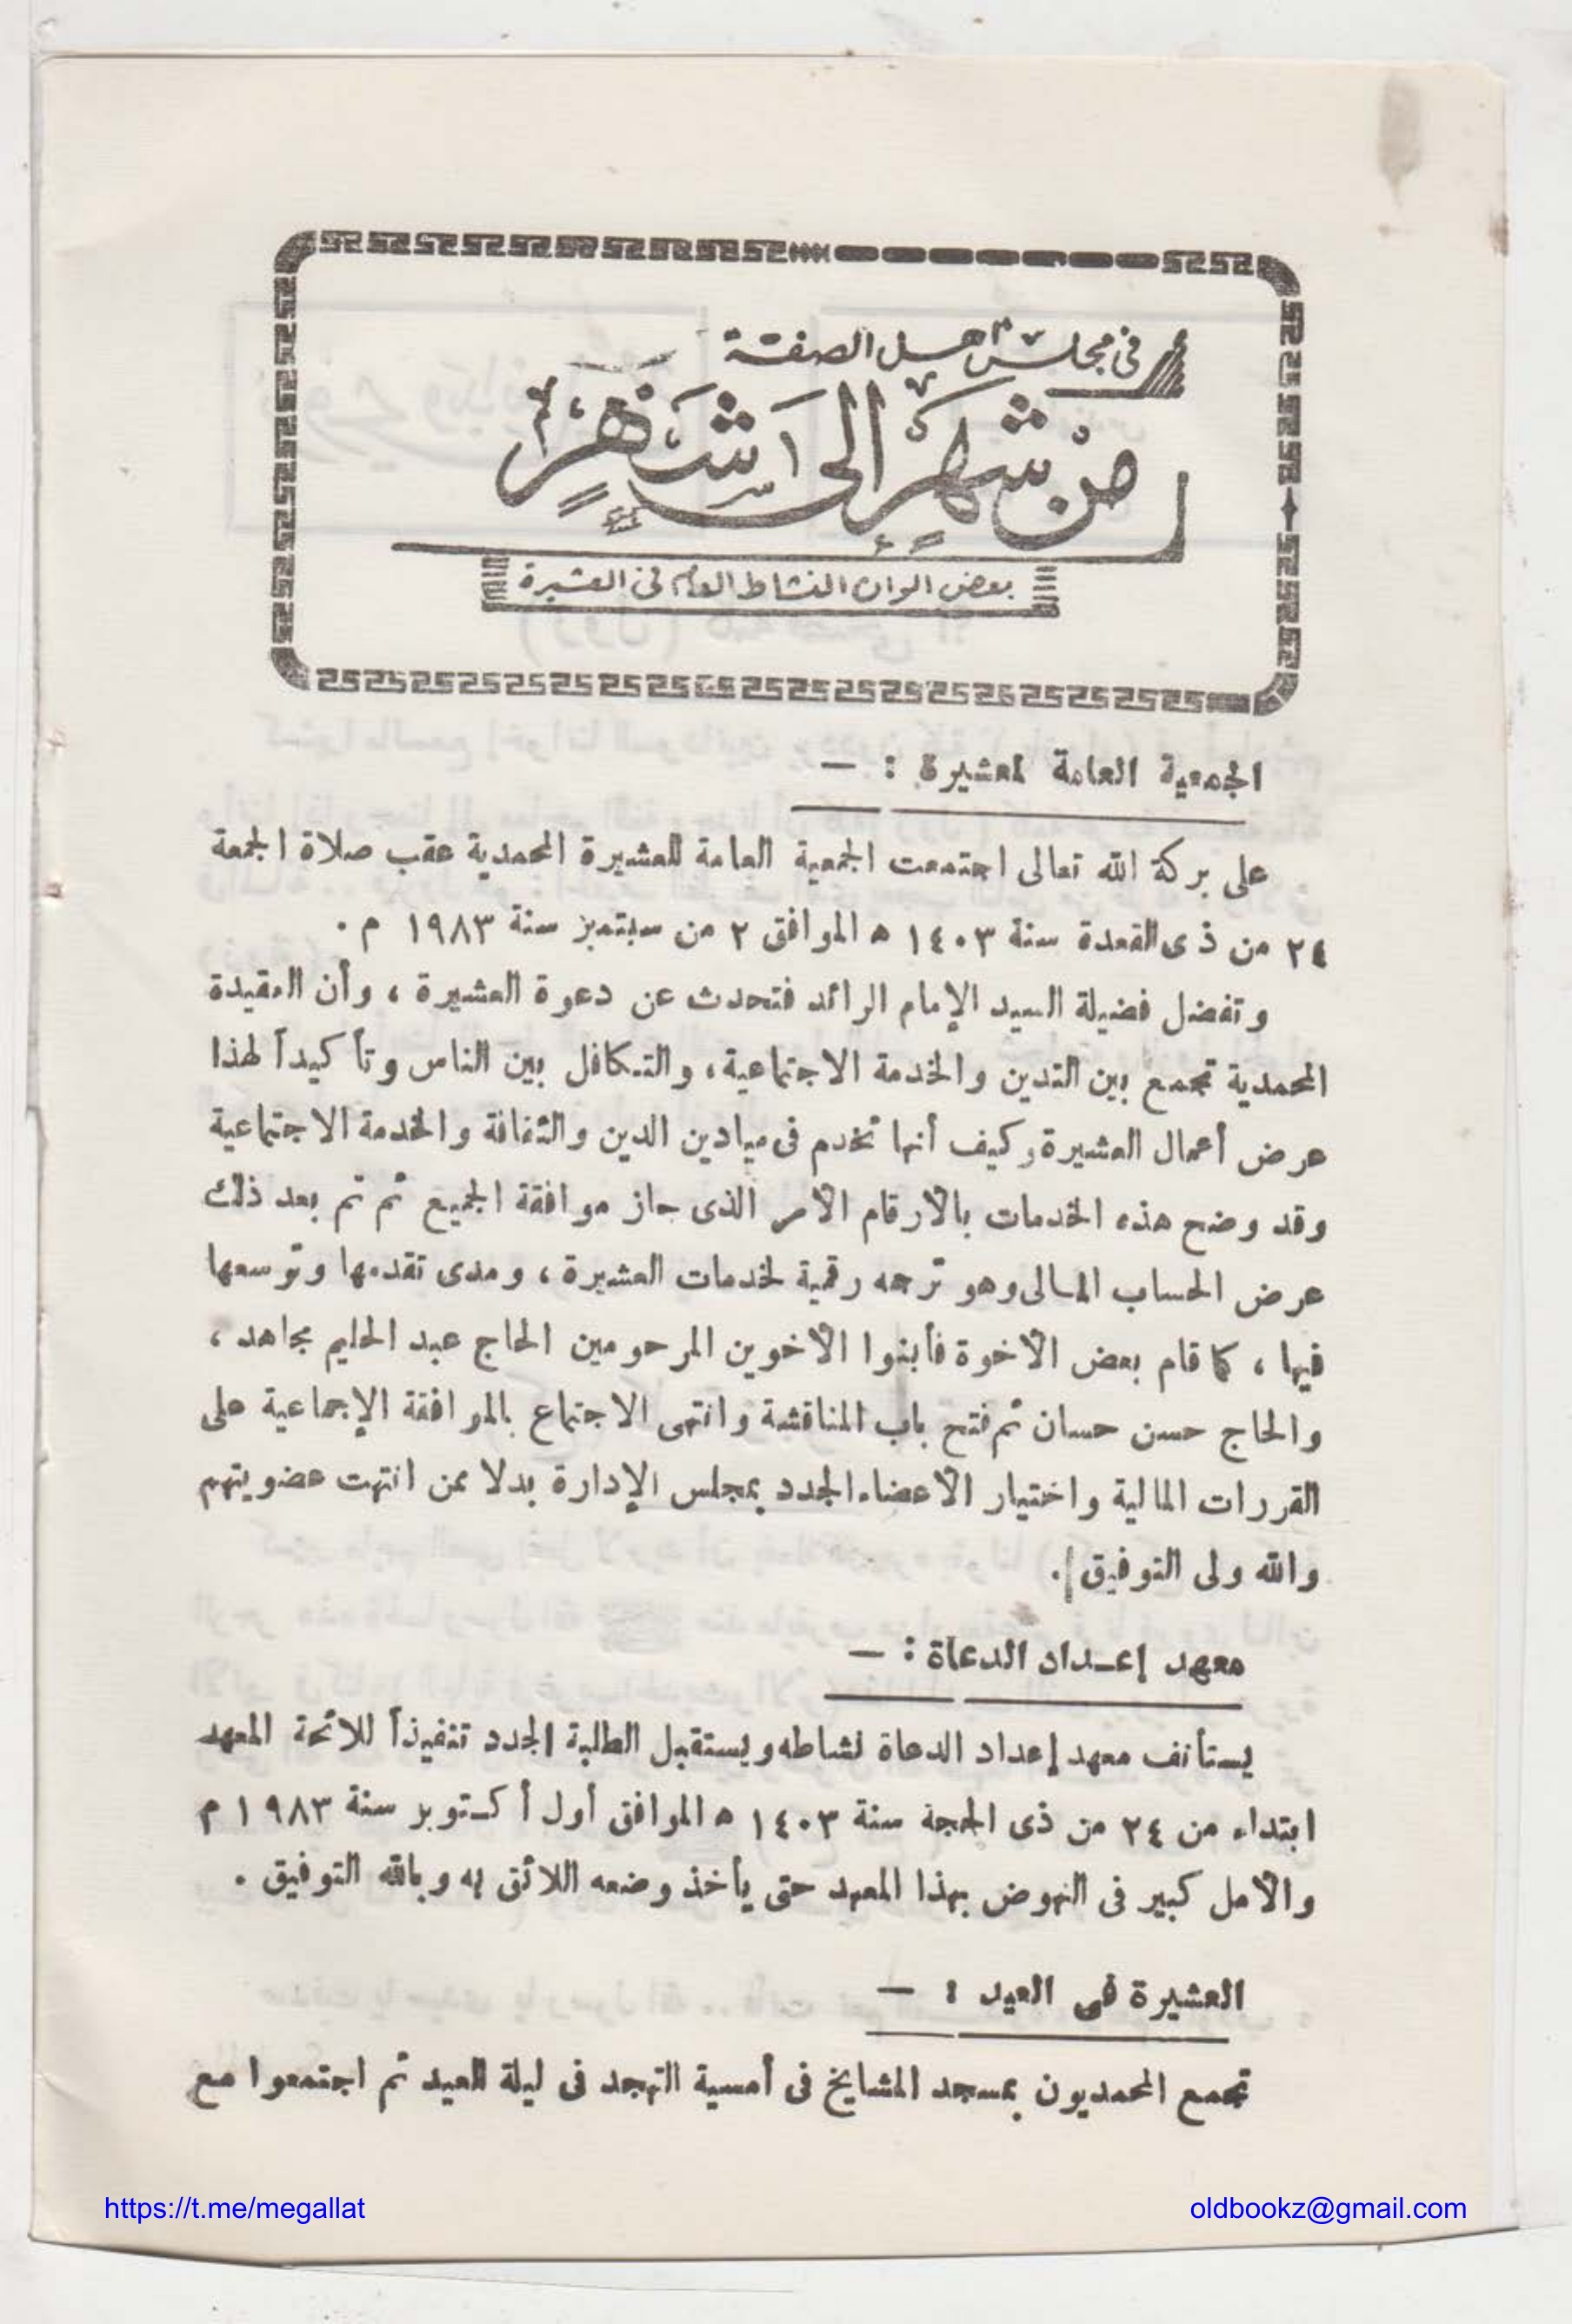 فى مجلس أهل الصفة
من شهر إلى شهر
بعض الوان النشاط العام فى العشيرة
الجمعية العامة لمعشيرة : —
على بركة الله تعالى اجتمعت الجمعية العامة للعشيرة المحمدية عقب صلاة الجمعة
٢٤ من ذى القعدة سنة ١٤٠٣ ه الموافق ٢ من سبتمبر سنة ١٩٨٣ م .
وتفضل فضيلة السيد الإمام الرائد فتحدث عن دعوة العشيرة ، وأن العقيدة
المحمدية تجمع بين التدين والخدمة الاجتماعية ، والتكافل بين الناس وتأكيداً لهذا
عرض أعمال العشيرة وكيف أنها تخدم فى ميادين الدين والثقافة والخدمة الاجتماعية
وقد وضح هذه الخدمات بالأرقام الأمر الذى حاز موافقة الجميع ثم تم بعد ذلك
عرض الحساب المالى وهو ترجمه رقمية لخدمات العشيرة ، ومدى تقدمها وتوسعها
فيها ، كما قام بعض الأخوة فأبنوا الأخوين المرحومين الحاج عبد الحليم مجاهد ،
والحاج حسن حسان ثم فتح باب المناقشة وانتهى الاجتماع بالموافقة الإجماعية على
القررات المالية واختيار الأعضاء الجدد بمجلس الإدارة بدلا ممن انتهت عضويتهم
والله ولى التوفيق .
معهد إعـداد الدعاة : —
يستأنف معهد إعداد الدعاة نشاطه ويستقبل الطلبة الجدد تنفيذاً للائحة المعهد
ابتداء من ٢٤ من ذى الحجة سنة ١٤٠٣ ه الموافق أول أكتوبر سنة ١٩٨٣ م
والأمل كبير فى النهوض بهذا المعهد حتى يأخذ وضعه اللائق به وبالله التوفيق .
العشيرة فى العيد : —
تجمع المحمديون بمسجد المشايخ فى أمسية التهجد فى ليلة العيد ثم اجتمعوا مع
https://t.me/megallat
oldbookz@gmail.com